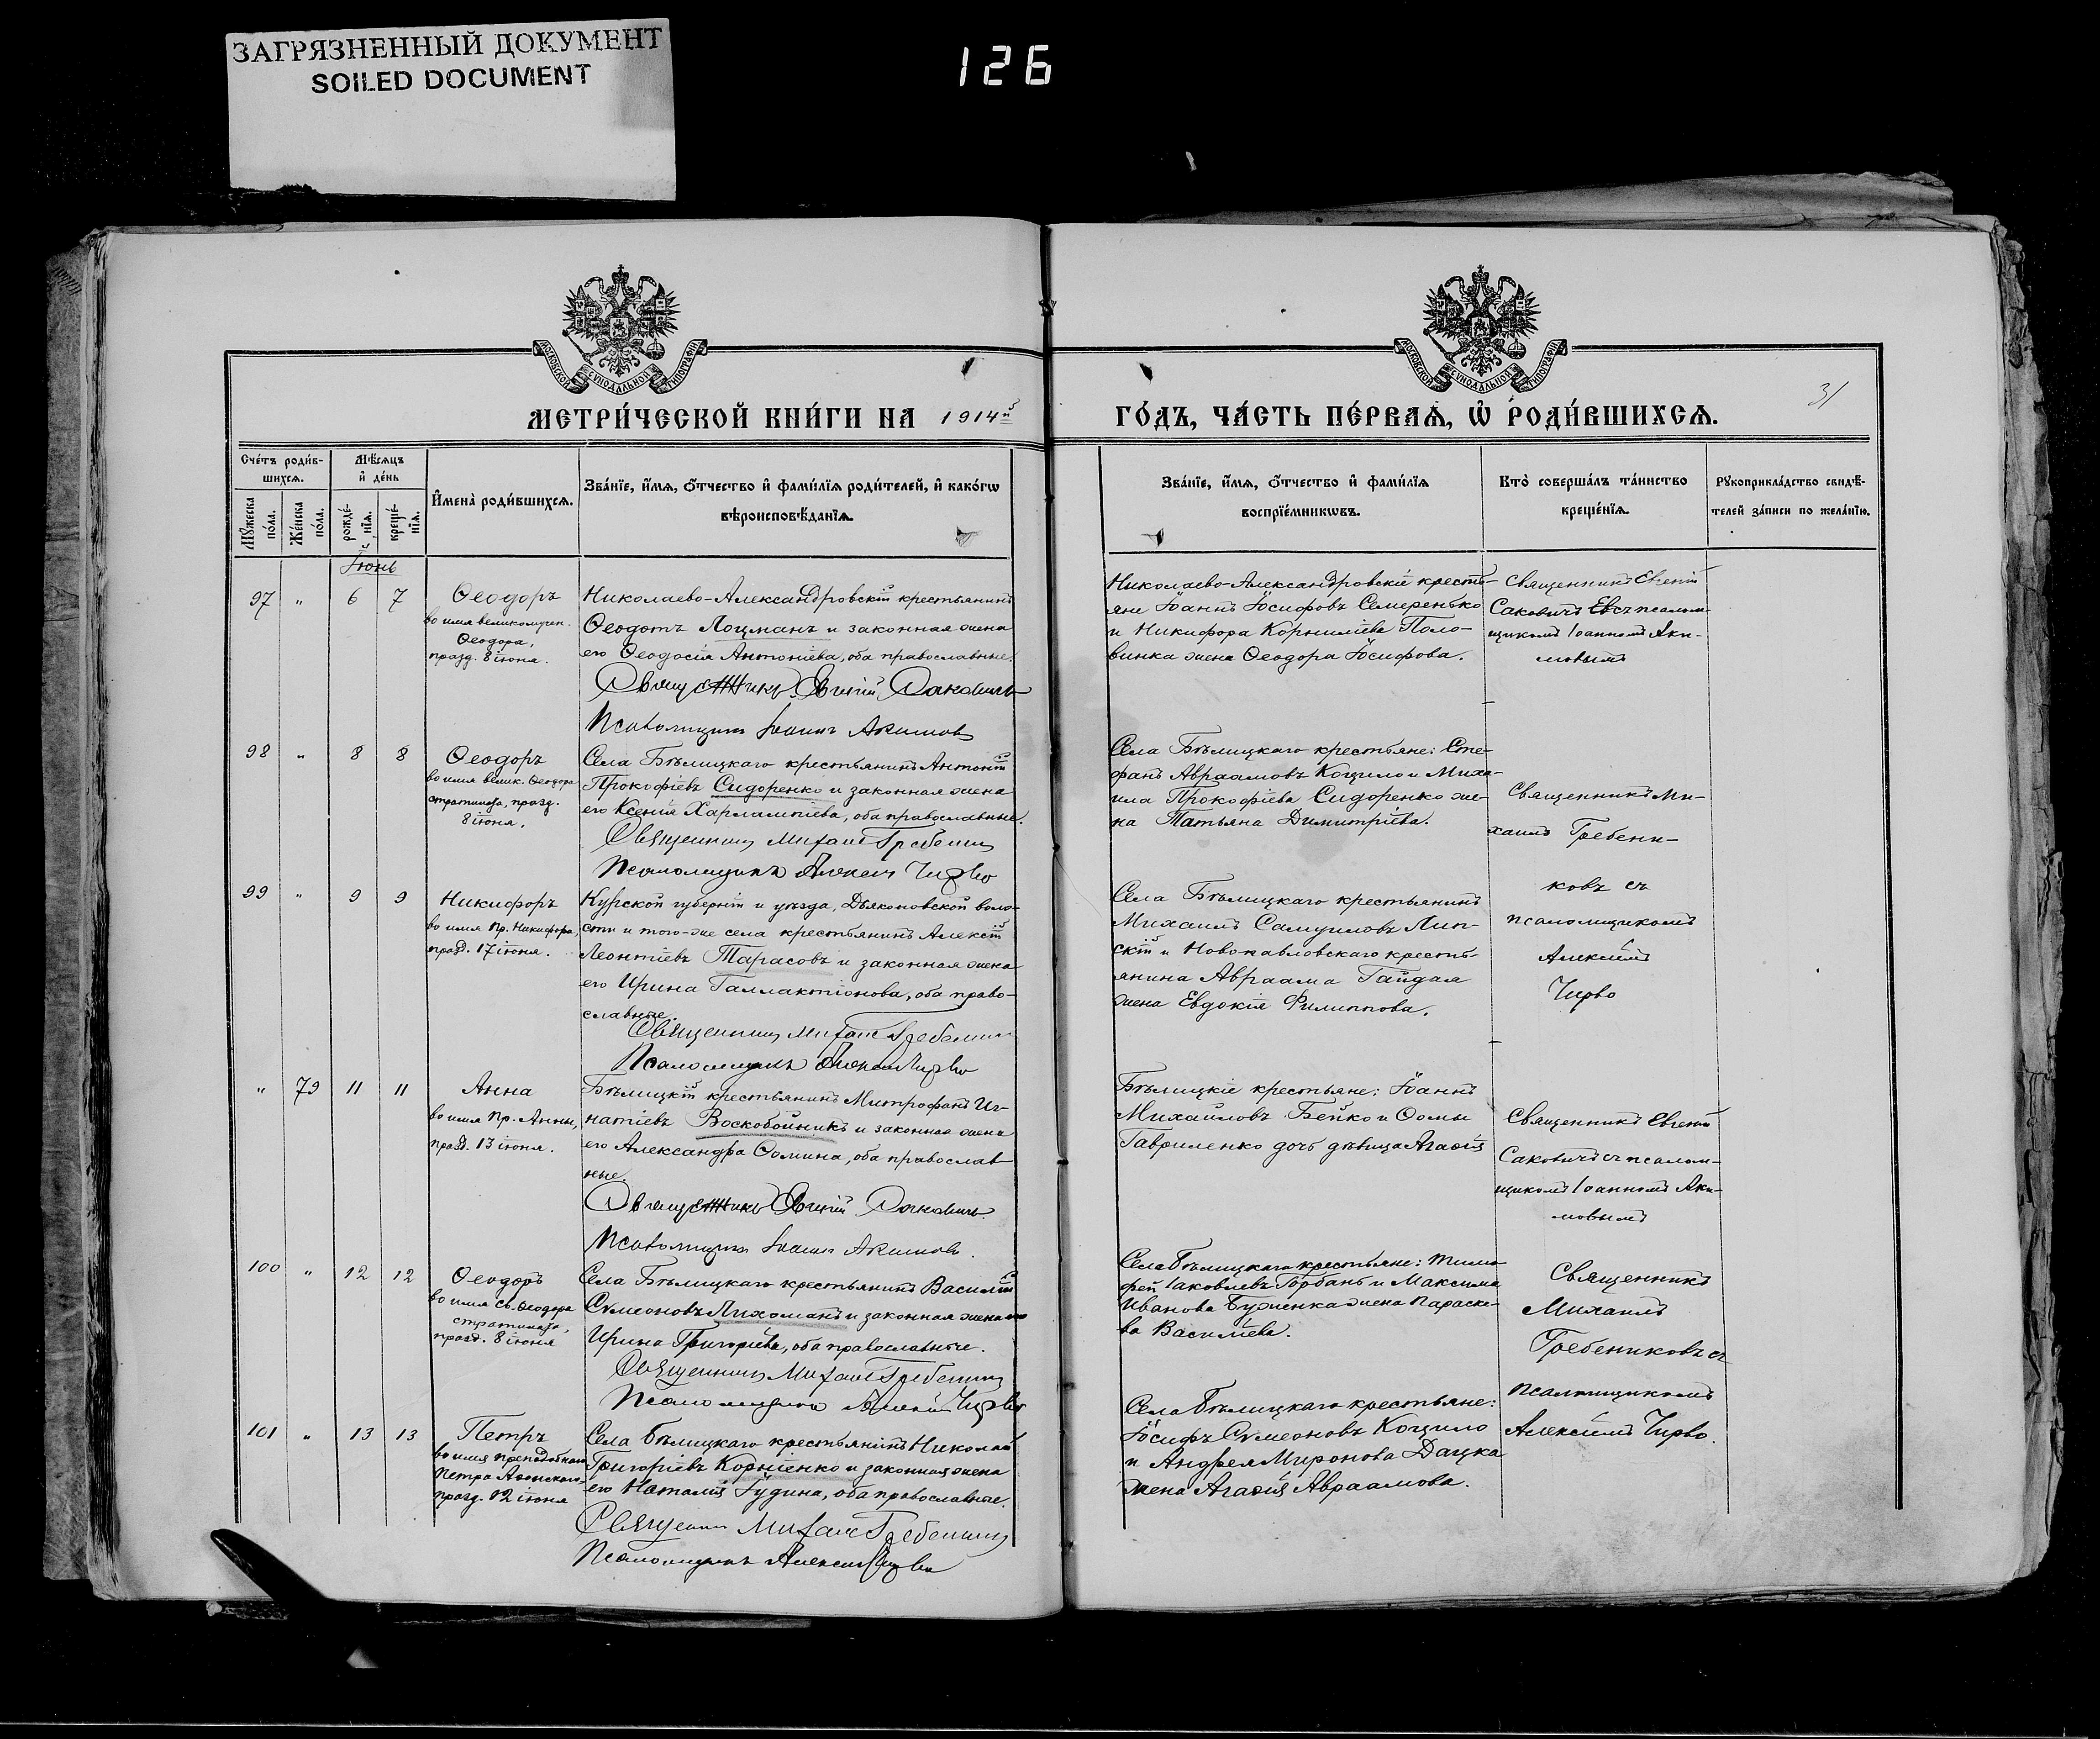 ЗАГРЯЗНЕННЫЙ ДОКУМЕНТ
SOILED DOCUMENT
126
МОСКОВСКОЙ СУНОДАЛЬНОЙ ТИПОГРАФІИ
МОСКОВСКОЙ СУНОДАЛЬНОЙ ТИПОГРАФІИ
31
МЕТРИ́ЧЕСКОЙ КНИ́ГИ НА 1914й
ГО́ДЪ, ЧА́СТЬ ПЕ́РВАѦ, Ѡ҆ РОДИ́ВШИХСѦ.
Сче́тъ роди́в-
шихсѧ.
Мѣ́сѧцъ
и҆ де́нь
Мꙋ́жеска по́ла.
Же́нска по́ла.
рожде́-
нїѧ.
креще́-
нїѧ.
И҆мена̀ роди́вшихсѧ.
Зва́нїе, и҆́мѧ, ѻ҆́тчество и҆ фами́лїѧ роди́телей, и҆ како́гѡ
вѣроисповѣ́данїѧ.
Зва́нїе, и҆́мѧ, ѻ҆́тчество и҆ фами́лїѧ
воспрїе́мникѡвъ.
Кто̀ соверша́лъ та́инство
креще́нїѧ.
Рꙋкоприкла́дство свидѣ́-
телей за́писи по жела́нїю.
Іюнь
97 " 6 7
Ѳеодоръ
во имя великомучен.
Ѳеодора,
празд. 8 іюня.
Николаево-Александровскій крестьянинъ
Ѳеодотъ Лоцманъ и законная жена
его Ѳеодосія Антоніева, оба православные.
Священникъ Евгеній Саковичъ
Псаломщикъ Іоаннъ Акимовъ
Николаево-Александровскіе кресть-
яне Іоаннъ Іосифовъ Семеренько
и Никифора Корниліева Поло-
винка жена Ѳеодора Іосифова.
Священникъ Евгеній
Саковичъ съ псалом-
щикомъ Іоанномъ Аки-
мовымъ
98 " 8 8
Ѳеодоръ
во имя велик. Ѳеодора
стратилата, празд.
8 іюня.
Села Бѣлицкаго крестьянинъ Антоній
Прокофіевъ Сидоренко и законная жена
его Ксенія Харлампіева, оба православные.
Священникъ Михаилъ Гребеник
Псаломщикъ Алексѣй Чирво
Села Бѣлицкаго крестьяне: Сте-
фанъ Авраамовъ Коцило и Миха-
ила Прокофіева Сидоренко же-
на Татьяна Димитріева.
Священникъ Ми-
хаилъ Гребени-
ковъ съ
псаломщикомъ
Алексѣемъ
Чирво
99 " 9 9
Никифоръ
во имя Пр. Никифора,
празд. 17 іюня.
Курской губерніи и уѣзда, Дьяконовской воло-
сти и того-же села крестьянинъ Алексій
Леонтіевъ Тарасовъ и законная жена
его Ирина Галлактіонова, оба право-
славные.
Священникъ Михаилъ Гребеник
Псаломщикъ Алексѣй Чирво
Села Бѣлицкаго крестьянинъ
Михаилъ Самуиловъ Лип-
скій и Новопавловскаго кресть-
янина Авраама Гайдая
жена Евдокія Филиппова.
" 79 11 11
Анна
во имя Пр. Анны,
празд. 13 іюня.
Бѣлицкій крестьянинъ Митрофанъ Иг-
натіевъ Воскобойникъ и законная жена
его Александра Ѳомина, оба православ-
ные.
Священникъ Евгеній Саковичъ
Псаломщикъ Іоаннъ Акимовъ.
Бѣлицкіе крестьяне: Іоаннъ
Михайловъ Бейко и Ѳомы
Гавриленко дочь дѣвица Агаѳія
Священникъ Евгеній
Саковичъ съ псалом-
щикомъ Іоанномъ Аки-
мовымъ
100 " 12 12
Ѳеодоръ
во имя св. Ѳеодора
стратилата,
празд. 8 іюня
Села Бѣлицкаго крестьянинъ Василій
Сѵмеоновъ Лихоманъ и законная жена его
Ирина Григоріева, оба православные.
Священникъ Михаилъ Гребеник
Псаломщикъ Алексѣй Чирво
Села Бѣлицкаго крестьяне: Тимо-
фей Іаковлевъ Горбань и Максима
Иванова Бузиенка жена Параске-
ва Василіева.
Священникъ
Михаилъ
Гребениковъ съ
псаломщикомъ
Алексѣемъ Чирво.
101 " 13 13
Петръ
во имя преподобнаго
Петра Аѳонскаго,
празд. 12 іюня
Села Бѣлицкаго крестьянинъ Николай
Григоріевъ Корніенко и законная жена
его Наталія Іудина, оба православные.
Священникъ Михаилъ Гребеник
Псаломщикъ Алексѣй Чирво
Села Бѣлицкаго крестьяне:
Іосифъ Сѵмеоновъ Коцило
и Андрея Миронова Дацка
жена Агаѳія Авраамова.